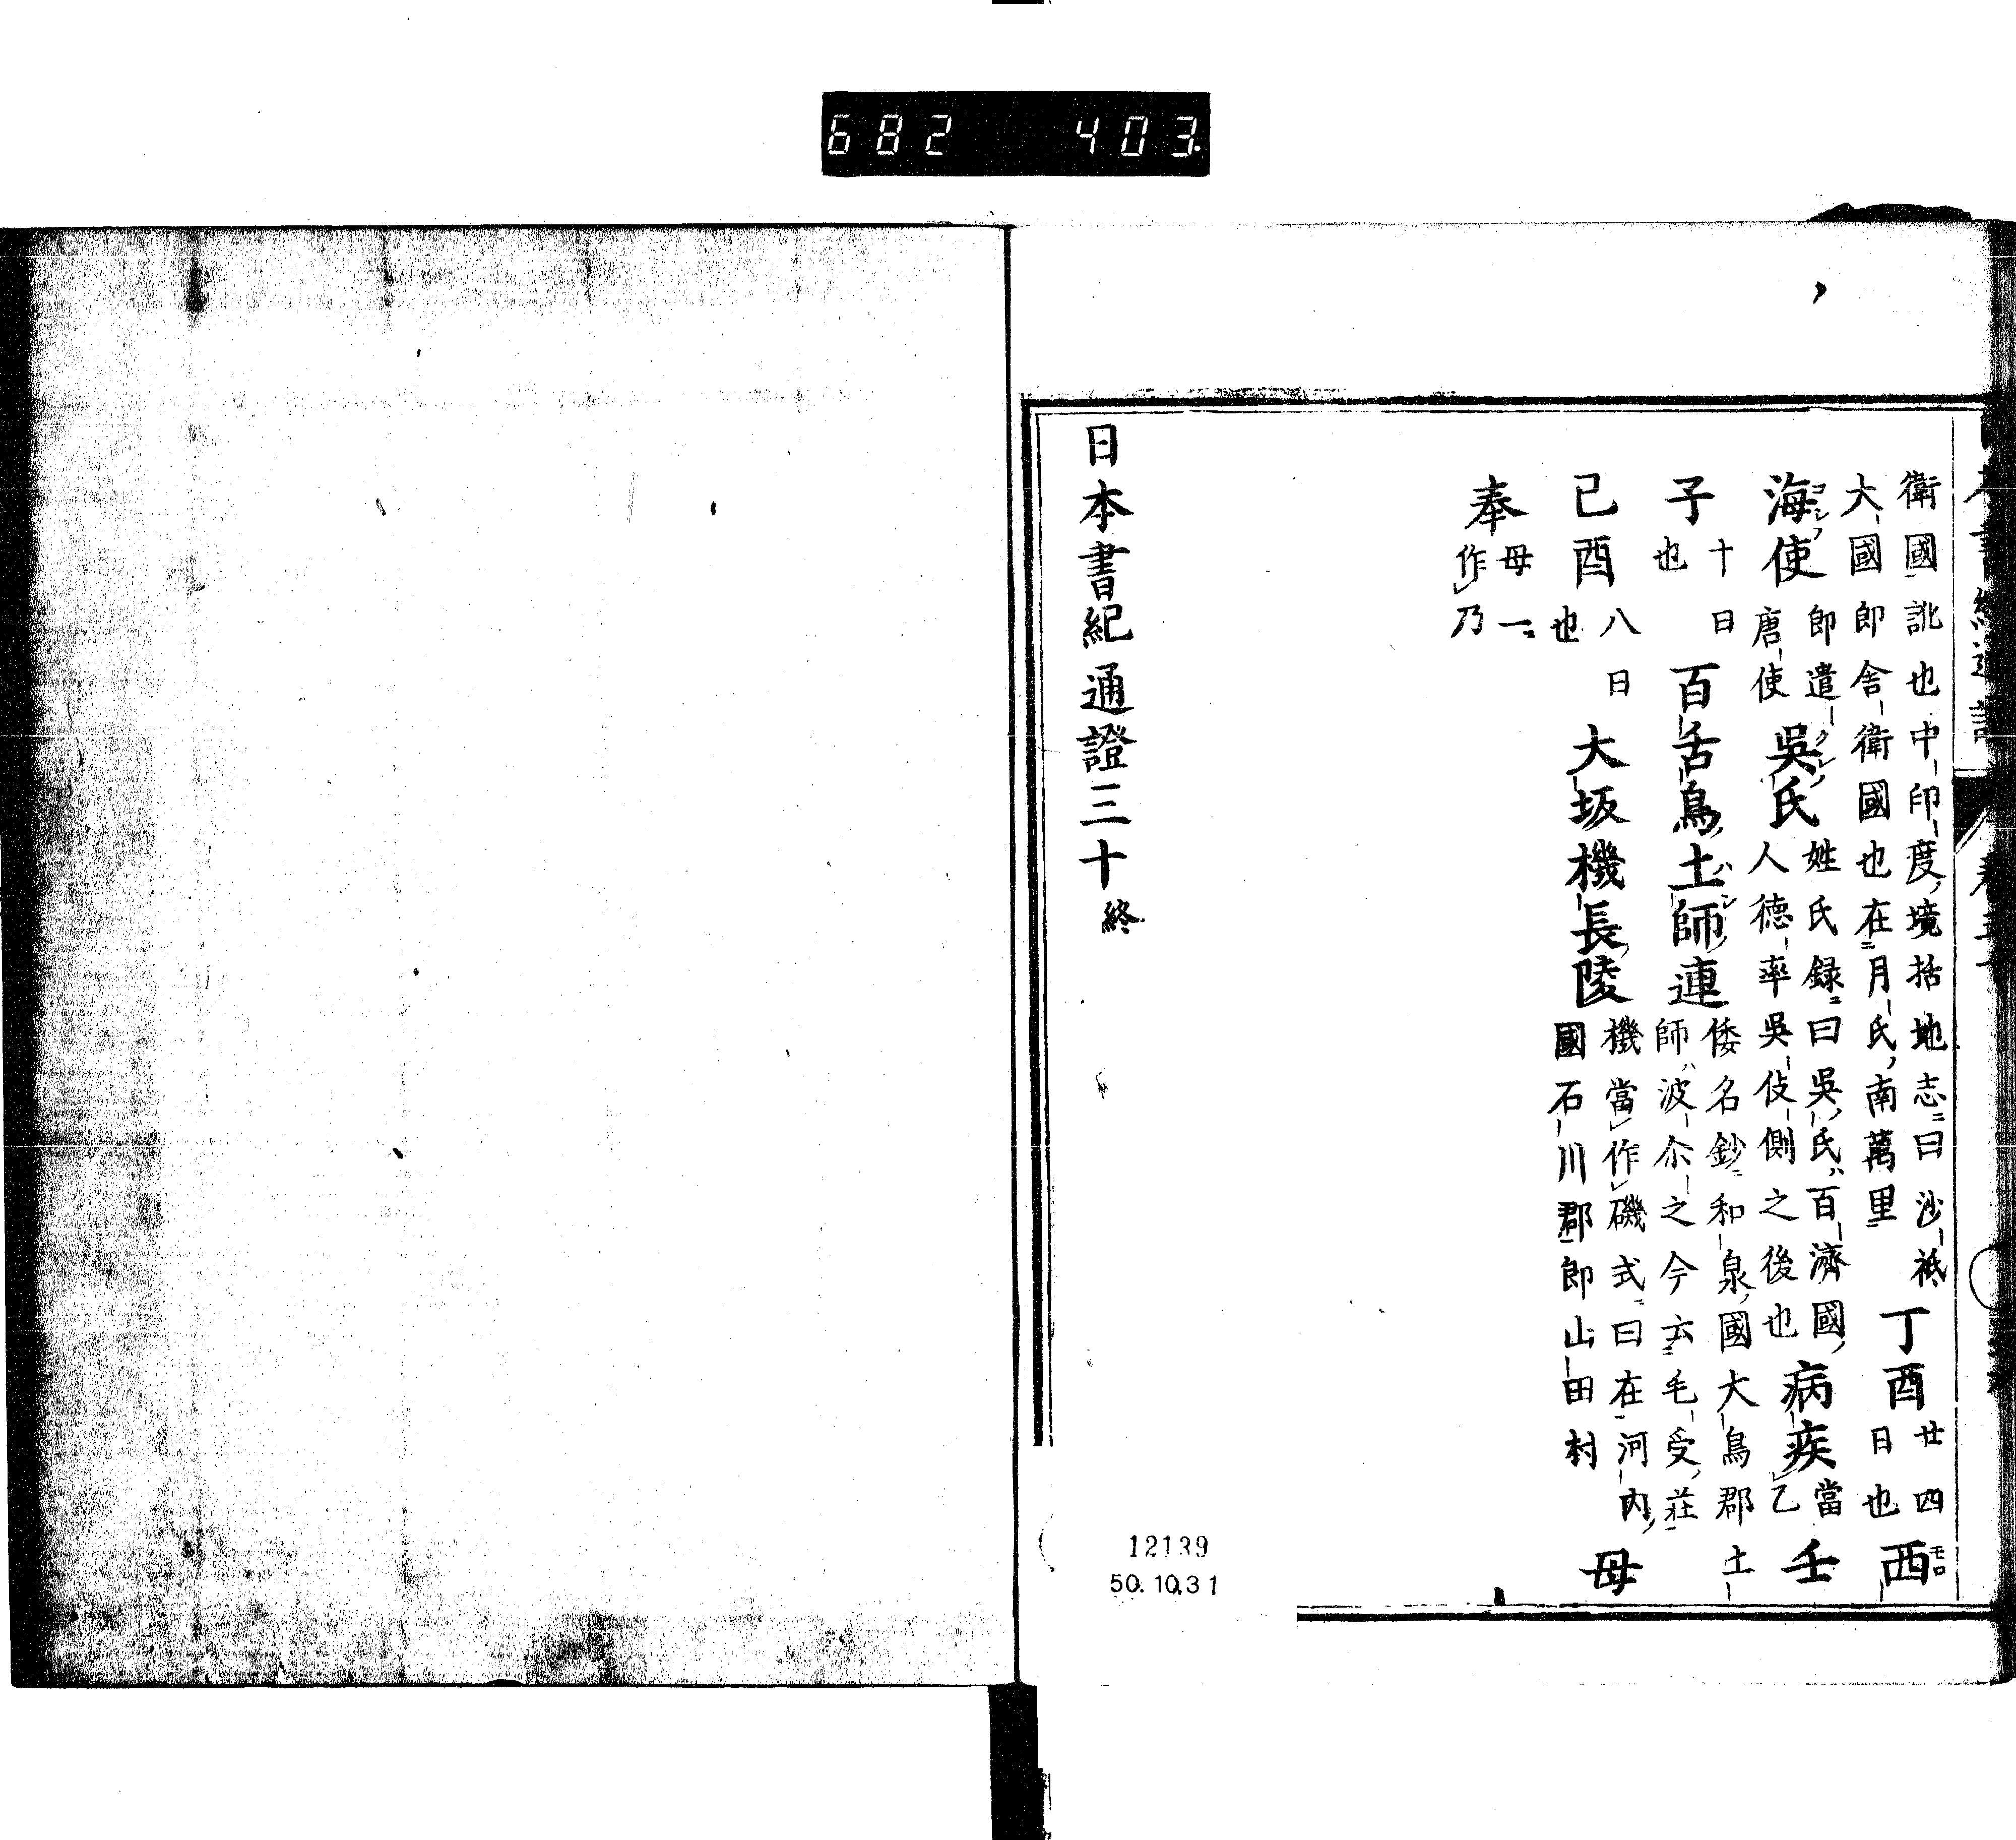 682 403
衛國訛也中印度境括地志曰沙祇大國即舎衛國也在月氏南萬里丁酉廿四日也西モロ
海使即遣唐使吳氏姓氏録曰吳氏百濟國人德率吳伎側之後也病疾當乙壬
子十日也百舌鳥土師連倭名鈔和泉國大鳥郡土師波尒之今云毛受荘
己酉八日也大坂機長陵機當作磯式曰在河内國石川郡郎山田村母
奉母一作乃
日本書紀通證三十終
12139
50.10.31